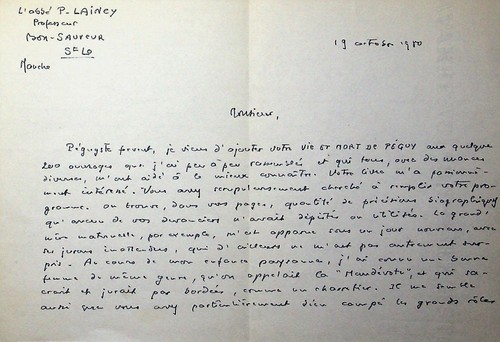 L'abbé P. LAINEY
Professeur
BON-SAUVEUR
St Lô
Manche
19 octobre 1980
Monsieur,
Péguyste fervent, je viens d'ajouter votre VIE ET MORT DE PÉGUY aux quelque
200 ouvrages que j'ai peu à peu ramassés et qui tous, avec des nuances
diverses, m'ont aidé à le mieux connaître. Votre livre m'a passionné-
ment intéressé. Vous avez scrupuleusement cherché à remplir votre pro-
gramme. On trouve, dans vos pages, quantité de précisions biographiques
qu'aucun de vos devanciers n'avait dépistées ou utilisées. La grand'
mère maternelle, par exemple, m'est apparue sous un jour nouveau, avec
ses jurons inattendus, qui d'ailleurs ne m'ont pas autrement sur-
pris. Au cours de mon enfance paysanne, j'ai connu une bonne
femme du même genre, qu'on appelait la et qui sa-
crait et jurait par bordées, comme un charretier. Il me semble
aussi que vous avez particulièrement bien campé les grands rôles